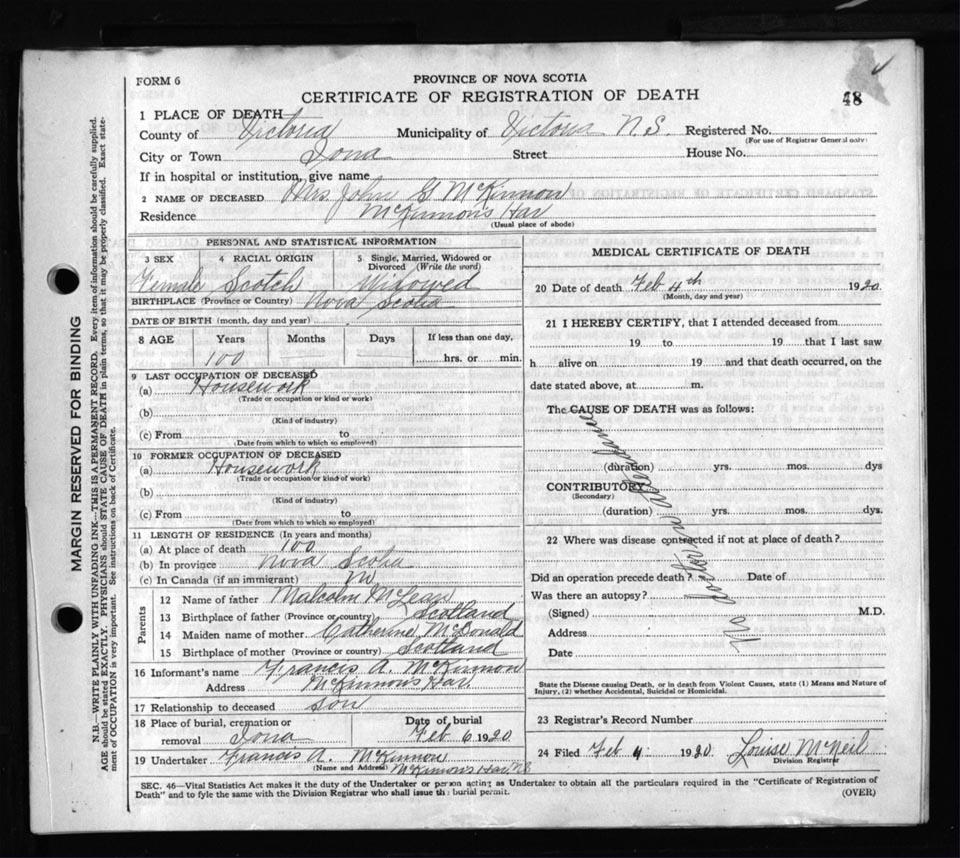 FORM 6
PROVINCE OF NOVA SCOTIA
CERTIFICATE OF REGISTRATION OF DEATH
48
1 PLACE OF DEATH
County of Victoria Municipality of Victoria N.S. Registered No.
(For use of Registrar General only)
City or Town Iona Street House No.
If in hospital or institution, give name
2 NAME OF DECEASED Mrs. John G McKinnon
Residence McKinnon's Har
(Usual place of abode)
PERSONAL AND STATISTICAL INFORMATION
3 SEX 4 RACIAL ORIGIN 5 Single, Married, Widowed or Divorced (Write the word)
Female Scotch Widowed
BIRTHPLACE (Province or Country) Nova Scotia
DATE OF BIRTH (month, day and year)
8 AGE Years Months Days If less than one day,
100 hrs. or min.
9 LAST OCCUPATION OF DECEASED
(a) Housework
(Trade or occupation or kind or work)
(b)
(Kind of industry)
(c) From to
(Date from which to which so employed)
10 FORMER OCCUPATION OF DECEASED
(a) Housework
(Trade or occupation or kind of work)
(b)
(Kind of industry)
(c) From to
(Date from which to which so employed)
11 LENGTH OF RESIDENCE (In years and months)
(a) At place of death 100
(b) In province Nova Scotia
(c) In Canada (if an immigrant)
Parents
12 Name of father Malcolm McLean
13 Birthplace of father (Province or country) Scotland
14 Maiden name of mother Catherine McDonald
15 Birthplace of mother (Province or country) Scotland
16 Informant's name Francis A. McKinnon
Address McKinnon's Har.
17 Relationship to deceased son
18 Place of burial, cremation or removal Iona Date of burial Feb 6 1920
19 Undertaker Francis A. McKinnon
(Name and Address) McKinnon's Har, NS
MEDICAL CERTIFICATE OF DEATH
20 Date of death Feb 4th 1920
(Month, day and year)
21 I HEREBY CERTIFY, that I attended deceased from
19 to 19 that I last saw
h alive on 19 and that death occurred, on the
date stated above, at m.
The CAUSE OF DEATH was as follows:
No doctor in attendance
(duration) yrs. mos. dys
CONTRIBUTORY
(Secondary)
(duration) yrs. mos. dys.
22 Where was disease contracted if not at place of death?
Did an operation precede death? Date of
Was there an autopsy?
(Signed) M.D.
Address
Date
State the Disease causing Death, or in death from Violent Causes, state (1) Means and Nature of
Injury, (2) whether Accidental, Suicidal or Homicidal.
23 Registrar's Record Number
24 Filed Feb 4 1920 Louise McNeil
Division Registrar
SEC. 46—Vital Statistics Act makes it the duty of the Undertaker or person acting as Undertaker to obtain all the particulars required in the "Certificate of Registration of
Death" and to fyle the same with the Division Registrar who shall issue the burial permit.
(OVER)
MARGIN RESERVED FOR BINDING
N.B.—WRITE PLAINLY WITH UNFADING INK—THIS IS A PERMANENT RECORD. Every item of information should be carefully supplied.
AGE should be stated EXACTLY. PHYSICIANS should STATE CAUSE OF DEATH in plain terms, so that it may be properly classified. Exact state-
ment of OCCUPATION is very important. See instructions on back of Certificate.